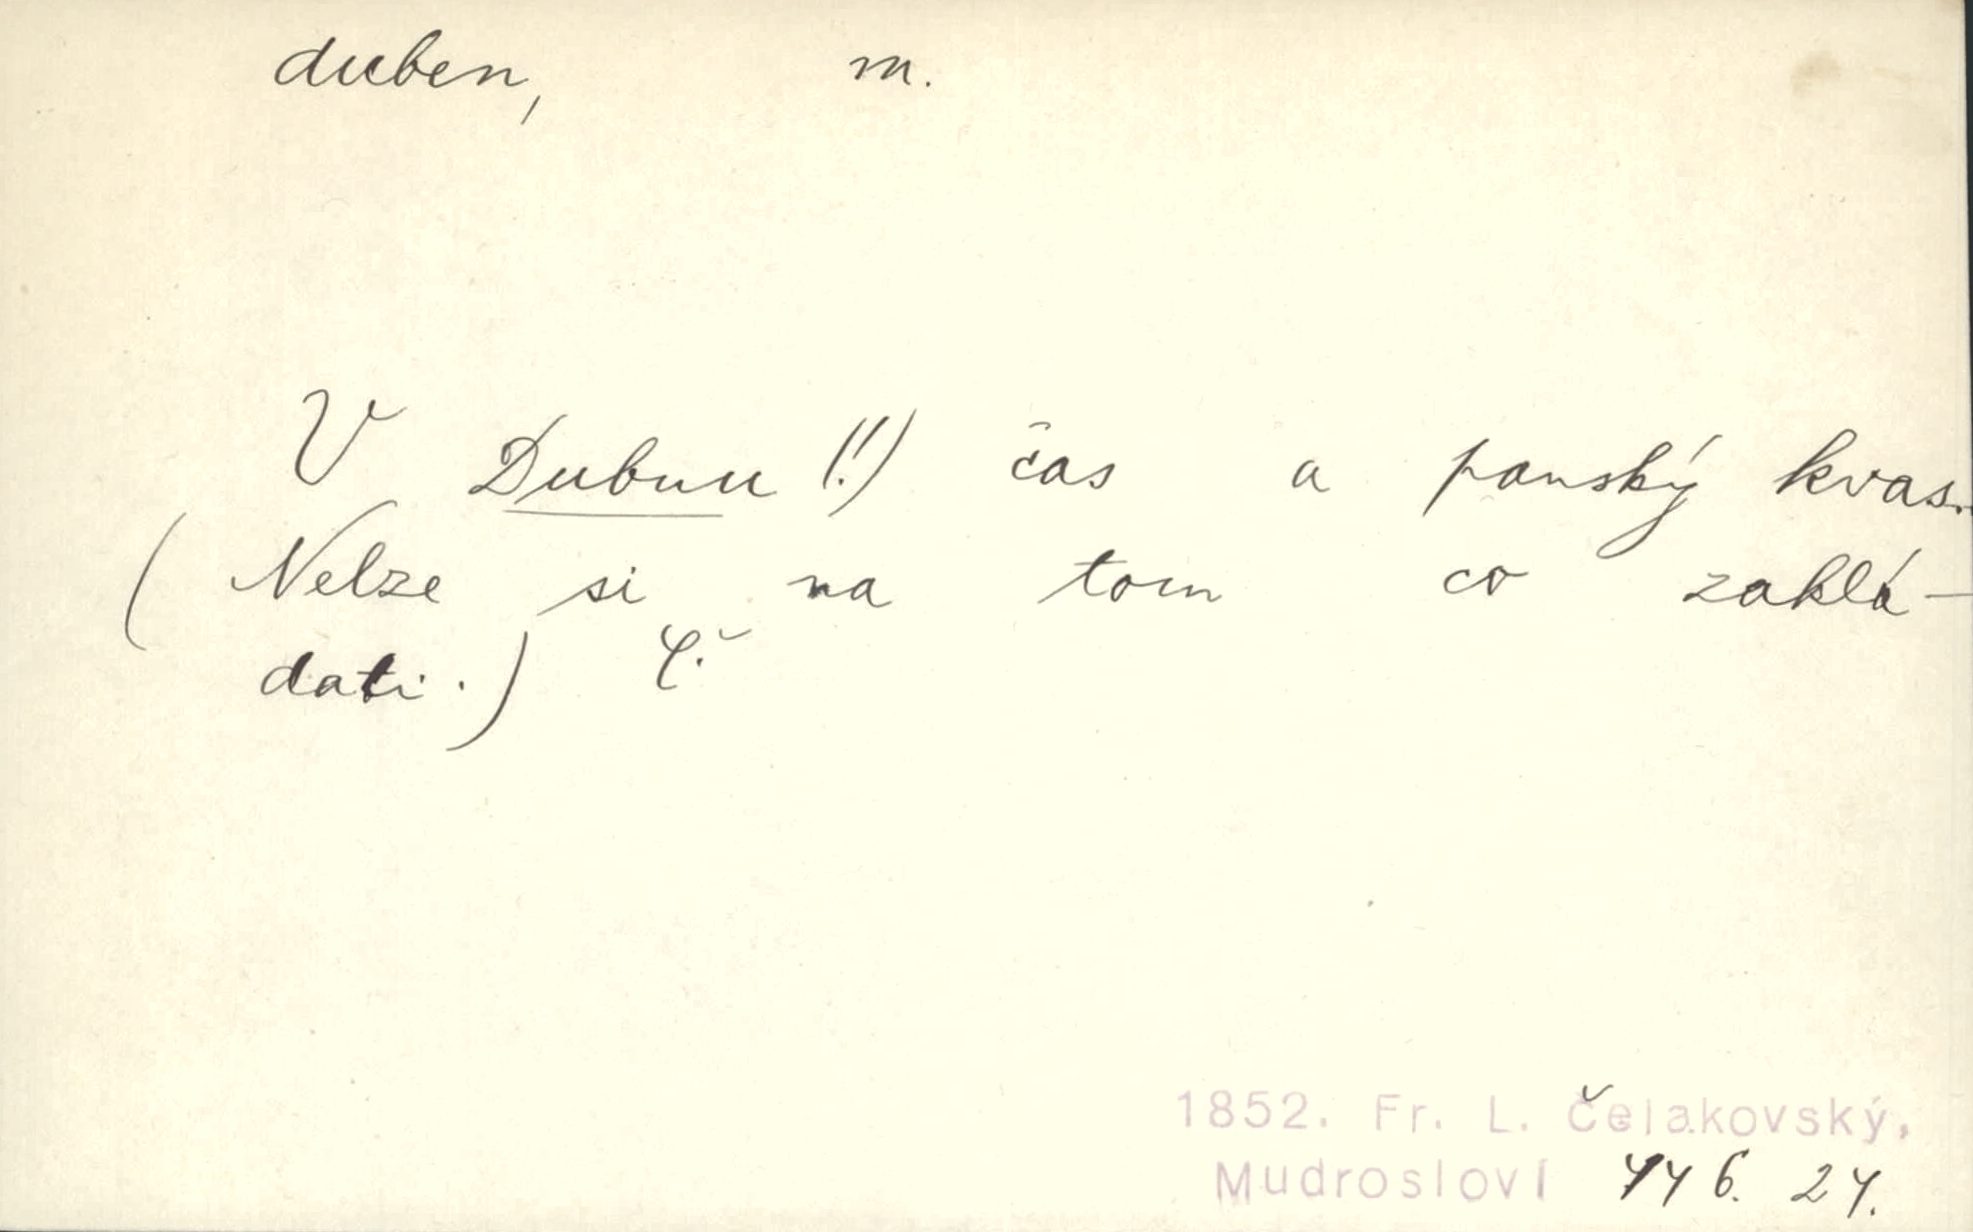 duben, m.
V Dubnu (!) čas a panský kvas.
(Nelze si na tom co zaklá-
dati.) Č.
1852. Fr. L. Čelakovský,
Mudrosloví 446. 24.